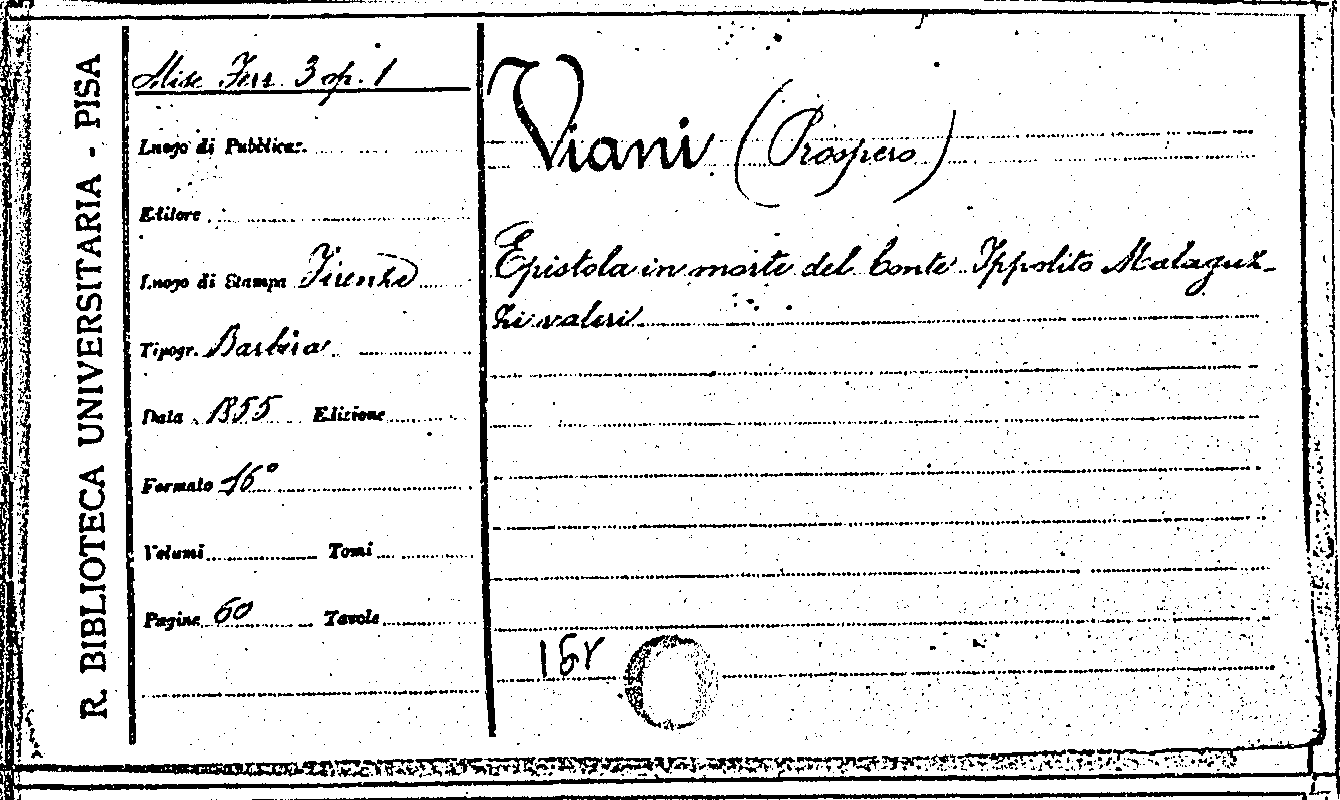 R. BIBLIOTECA UNIVERSITARIA - PISA
Misc Ferr. 3 op. 1
Luogo di Pubblicaz.
Editore
Luogo di Stampa Firenze
Tipogr. Barbèra
Data 1855 Edizione
Formato 16°
Volumi Tomi
Pagine 60 Tavole
Viani (Prospero)
Epistola in morte del Conte Ippolito Malaguz-
zi valeri